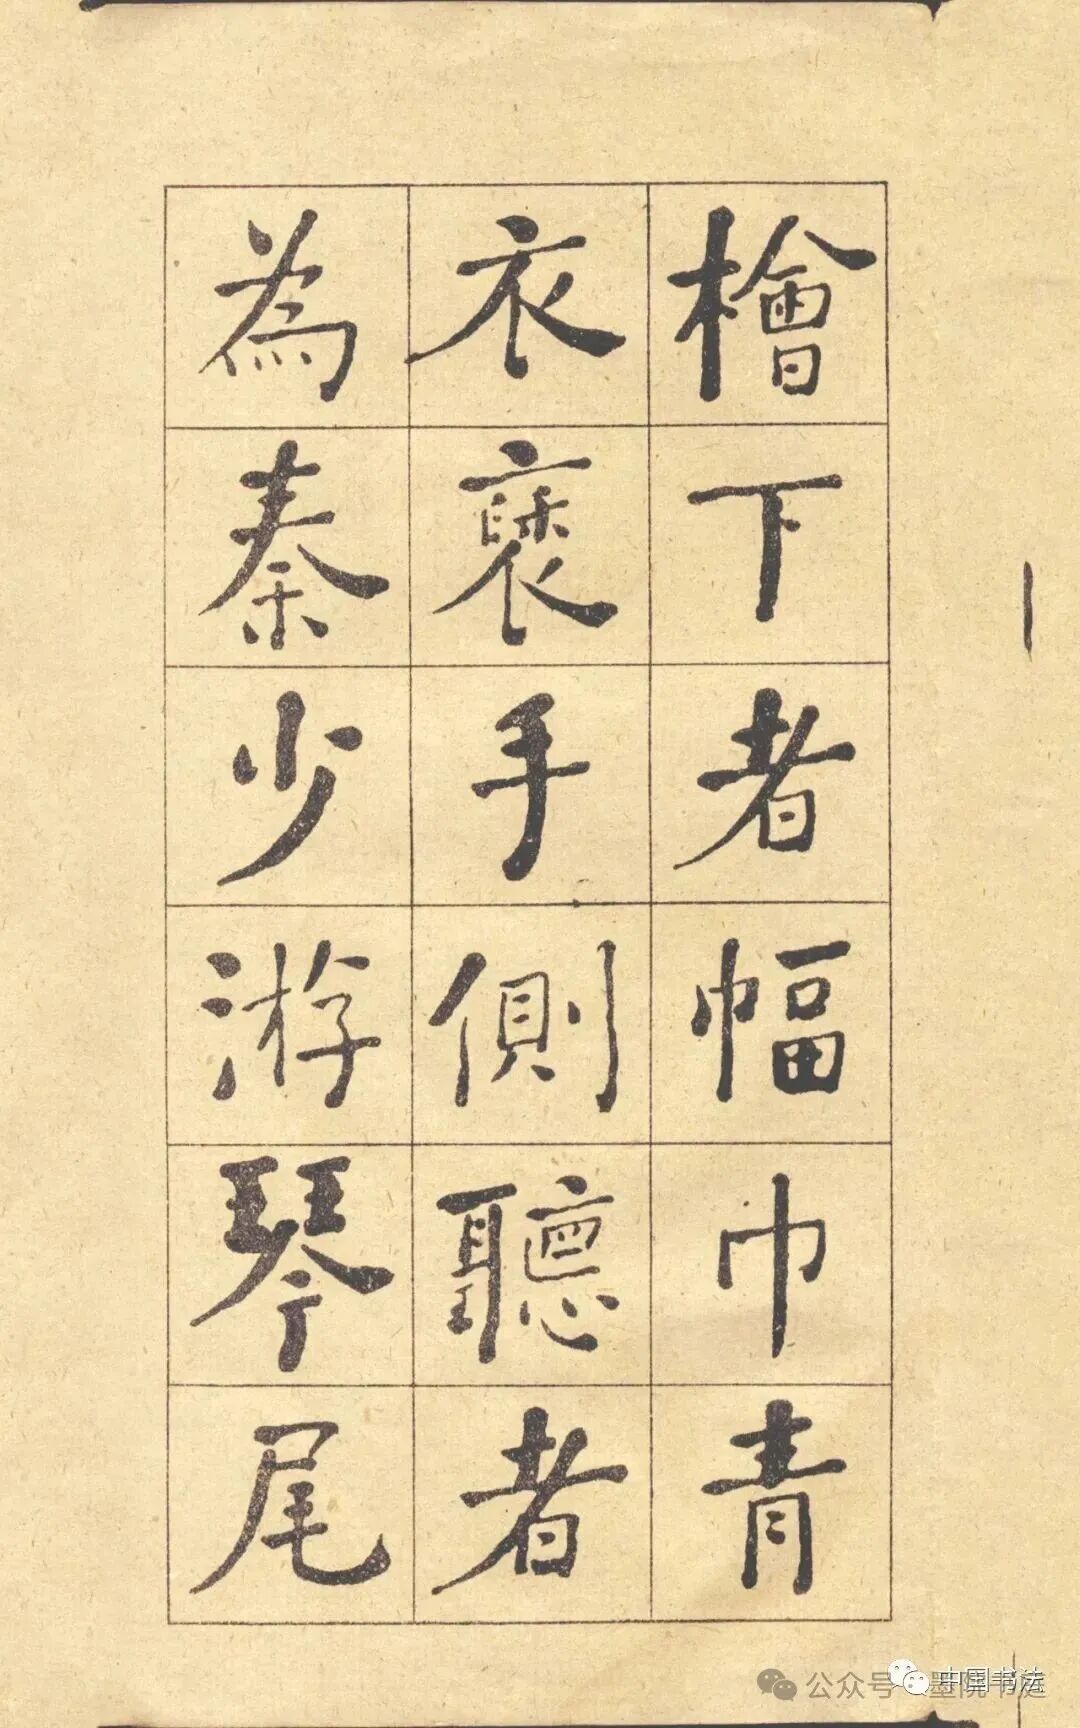 檜下者幅巾青
衣褎手側聽者
為秦少游琴尾
公众号
中国书法